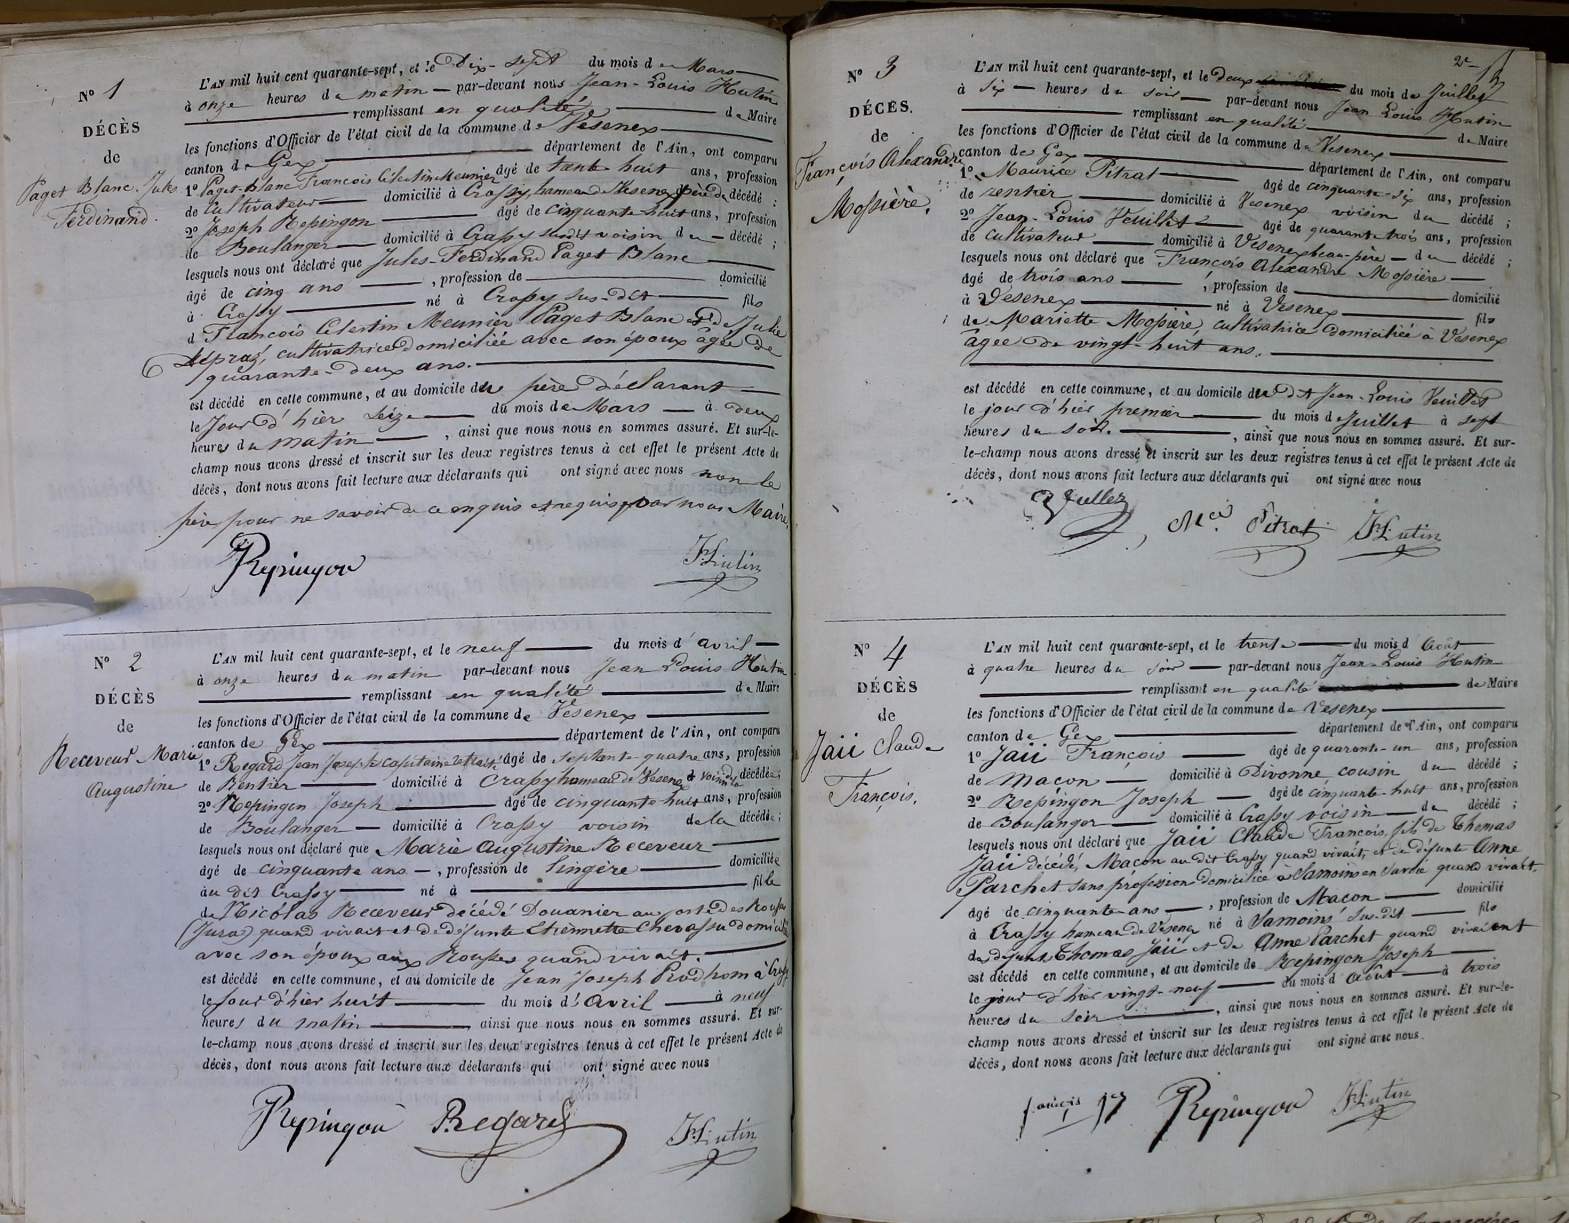 N° 1
DÉCÈS
de
Paget Blanc Jules
Ferdinand.
L'AN mil huit cent quarante-sept, et le Dix-sept du mois de Mars
à onze heures du matin par-devant nous Jean-Louis Hutin
remplissant en qualité de Maire
les fonctions d'Officier de l'état civil de la commune de Vesenex
canton de Gex département de l'Ain, ont comparu
1° Paget-Blanc François Célestin Meunier âgé de trente huit ans, profession
de Cultivateur domicilié à Crassy, hameau de Vesenex père du décédé ;
2° Joseph Repingon âgé de cinquante huit ans, profession
de Boulanger domicilié à Crassy susdit voisin du décédé ;
lesquels nous ont déclaré que Jules-Ferdinand Paget Blanc
âgé de cinq ans , profession de domicilié
à Crassy né à Crassy sus-dit fils
d François Célestin Meunier Paget Blanc et de Julie
Lespraz, cultivatrice domiciliée avec son époux âgée de
quarante-deux ans.
est décédé en cette commune, et au domicile du père déclarant
le Jour d'hier seize du mois de Mars à deux
heures du matin , ainsi que nous nous en sommes assuré. Et sur-le-
champ nous avons dressé et inscrit sur les deux registres tenus à cet effet le présent Acte de
décès, dont nous avons fait lecture aux déclarants qui ont signé avec nous non le
père pour ne savoir de ce enquis et requis par nous Maire.
Repingon JLHutin
N° 2
DÉCÈS
de
Receveur Marie
Augustine
L'AN mil huit cent quarante-sept, et le neuf du mois d'avril
à onze heures du matin par-devant nous Jean Louis Hutin
remplissant en qualité de Maire
les fonctions d'Officier de l'état civil de la commune de Vesenex
canton de Gex département de l'Ain, ont comparu
1° Regard Jean Joseph capitaine retraité âgé de septante-quatre ans, profession
de Rentier domicilié à Crassy hameau de Vesenex voisin de la décédée ;
2° Repingon Joseph âgé de cinquante huit ans, profession
de Boulanger domicilié à Crassy voisin de la décédée ;
lesquels nous ont déclaré que Marie Augustine Receveur
âgé de cinquante ans , profession de Lingère domiciliée
au dit Crassy né à fille
de Nicolas Receveur décédé Douanier au poste des Rousses
(Jura) quand vivait et de défunte Etiennette Chevassu domiciliée
avec son époux aux Rousses quand vivait.
est décédé en cette commune, et au domicile de Jean Joseph Prodhom à Crassy
le Jour d'hier huit du mois d'Avril à neuf
heures du matin , ainsi que nous nous en sommes assuré. Et sur-
le-champ nous avons dressé et inscrit sur les deux registres tenus à cet effet le présent Acte de
décès, dont nous avons fait lecture aux déclarants qui ont signé avec nous
Repingon Regard JLHutin
2
N° 3
DÉCÈS.
de
François Alexandre
Mossière.
L'AN mil huit cent quarante-sept, et le Deux du mois de Juillet
à Six heures du soir par-devant nous Jean Louis Hutin
remplissant en qualité de Maire
les fonctions d'Officier de l'état civil de la commune de Vesenex
canton de Gex département de l'Ain, ont comparu
1° Maurice Pitrat âgé de cinquante-six ans, profession
de rentier domicilié à Vesenex voisin du décédé ;
2° Jean-Louis Veuillet âgé de quarante trois ans, profession
de cultivateur domicilié à Vesenex beau-père du décédé ;
lesquels nous ont déclaré que François Alexandre Mossière
âgé de trois ans , profession de domicilié
à Vesenex né à Vesenex fils
de Mariette Mossière, cultivatrice domiciliée à Vesenex
âgée de vingt-huit ans.
est décédé en cette commune, et au domicile du dit Jean-Louis Veuillet
le jour d'hier premier du mois de Juillet à sept
heures du soir. , ainsi que nous nous en sommes assuré. Et sur-
le-champ nous avons dressé et inscrit sur les deux registres tenus à cet effet le présent Acte de
décès, dont nous avons fait lecture aux déclarants qui ont signé avec nous
Mce Pitrat JLHutin
N° 4
DÉCÈS
de
Jaii Claude
François.
L'AN mil huit cent quarante-sept, et le trente du mois d'Août
à quatre heures du soir par-devant nous Jean-Louis Hutin
remplissant en qualité de Maire
les fonctions d'Officier de l'état civil de la commune de Vesenex
canton de Gex département de l'Ain, ont comparu
1° Jaii François âgé de quarante-un ans, profession
de Macon domicilié à Divonne cousin du décédé ;
2° Repingon Joseph âgé de cinquante-huit ans, profession
de Boulanger domicilié à Crassy voisin du décédé ;
lesquels nous ont déclaré que Jaii Claude François, fils de Thomas
Jaii décédé, Macon au dit Crassy quand vivait, et de défunte Anne
Parchet sans profession domiciliée à Samoins en Savoie quand vivait.
âgé de cinquante ans , profession de Macon domicilié
à Crassy hameau de Vesenex né à Samoins sus-dit fils
de defunt Thomas Jaii et de Anne Parchet quand vivaient
est décédé en cette commune, et au domicile de Repingon Joseph
le jour d'hier vingt-neuf du mois d'Août à trois
heures du soir , ainsi que nous nous en sommes assuré. Et sur-le-
champ nous avons dressé et inscrit sur les deux registres tenus à cet effet le présent Acte de
décès, dont nous avons fait lecture aux déclarants qui ont signé avec nous.
Repingon JLHutin